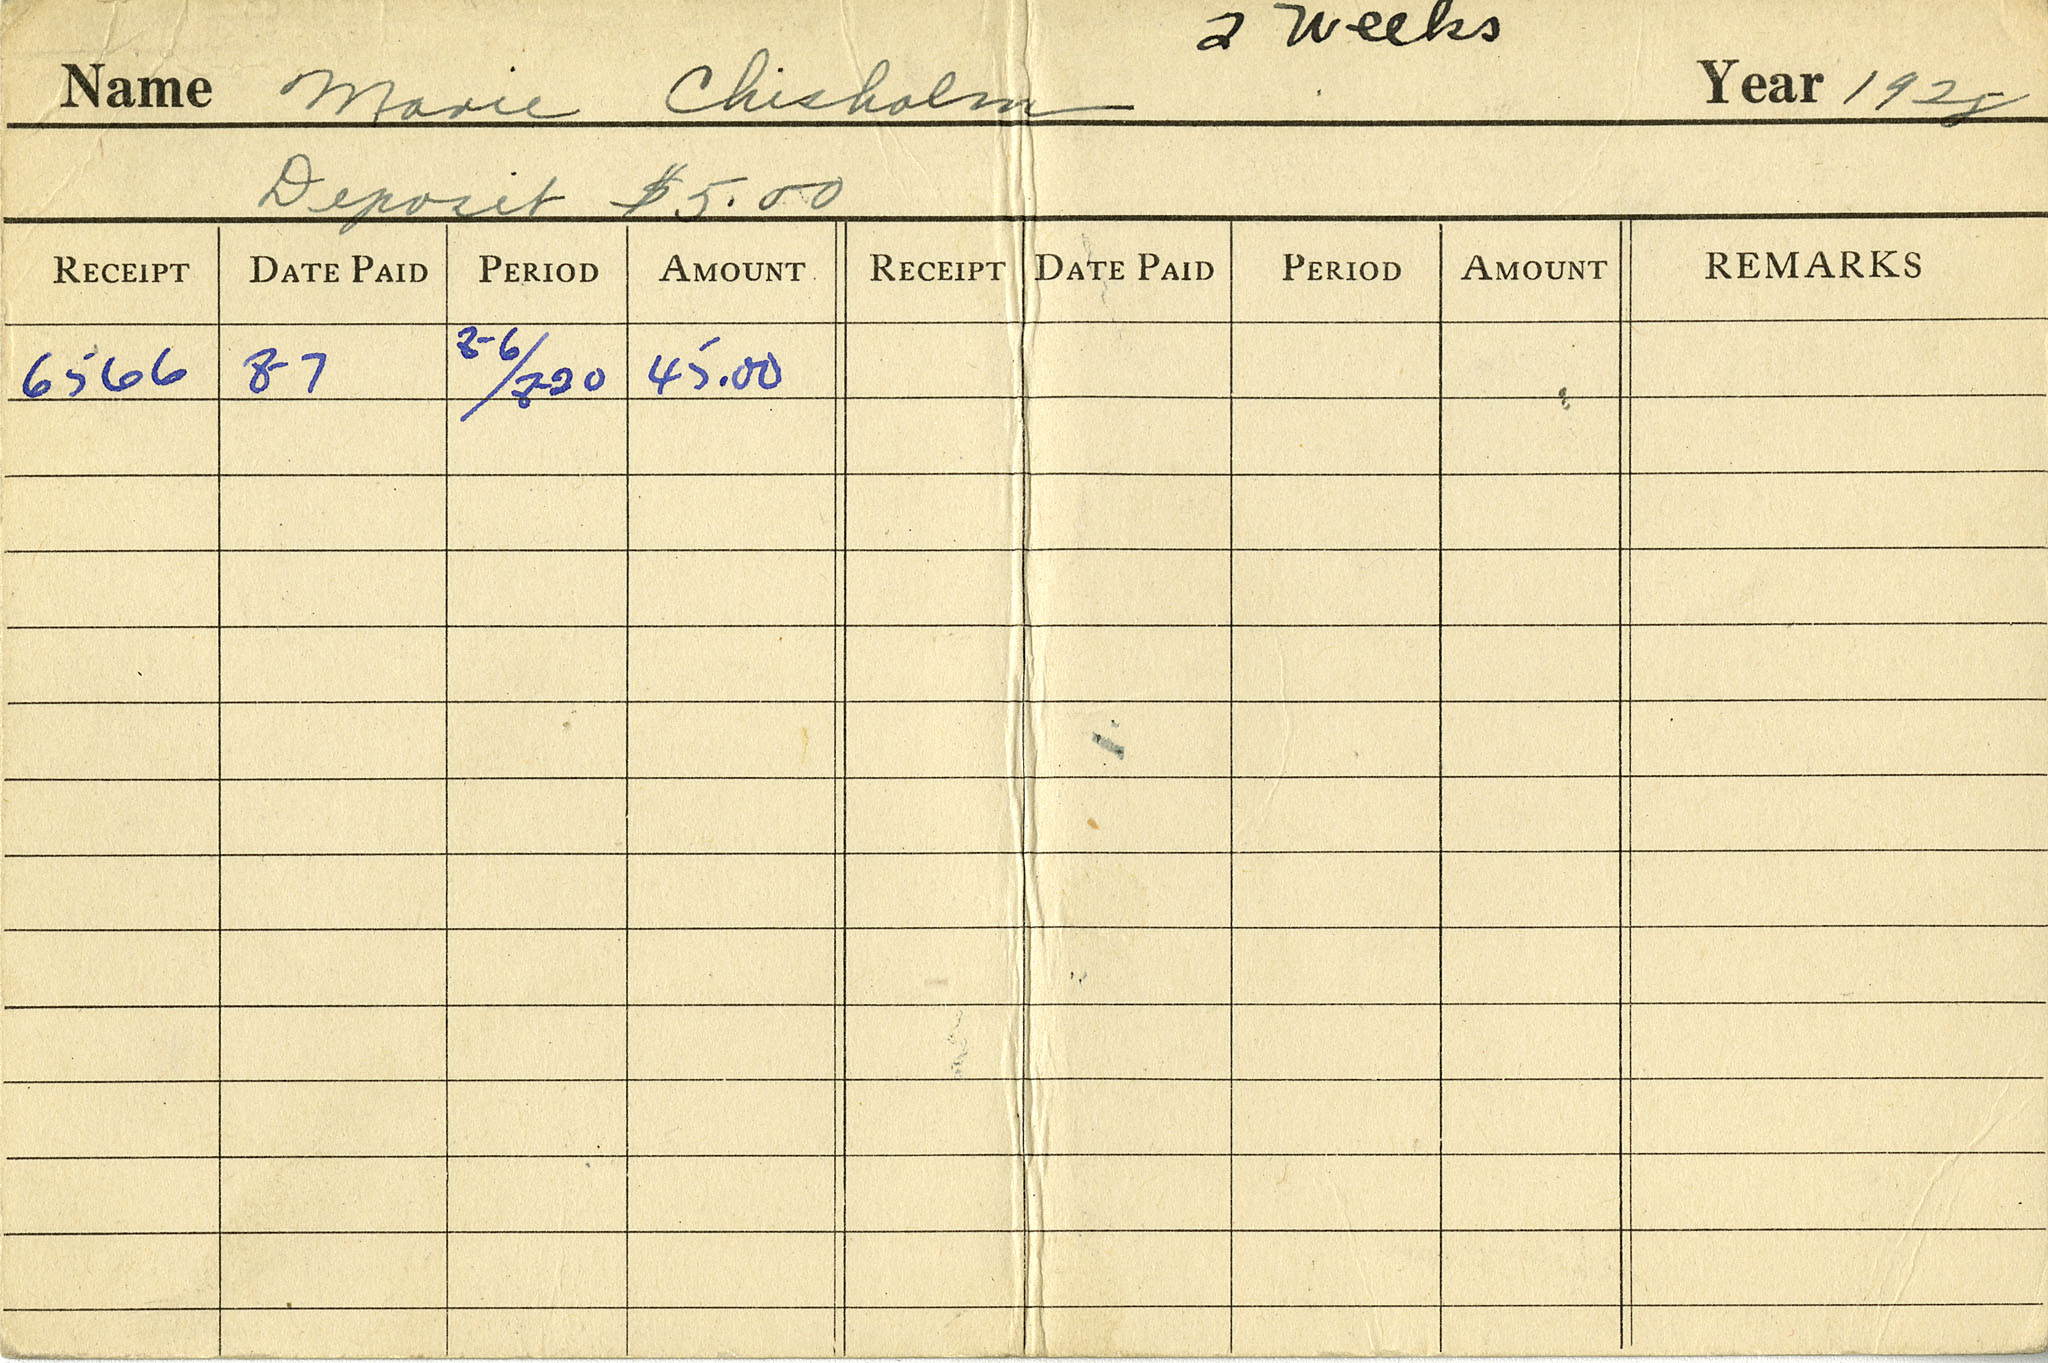 2 Weeks
Name Marie Chisholm Year 1928
Deposit $5.00
RECEIPT DATE PAID PERIOD AMOUNT RECEIPT DATE PAID PERIOD AMOUNT REMARKS
6566 8-7 8-6/8-20 45.00